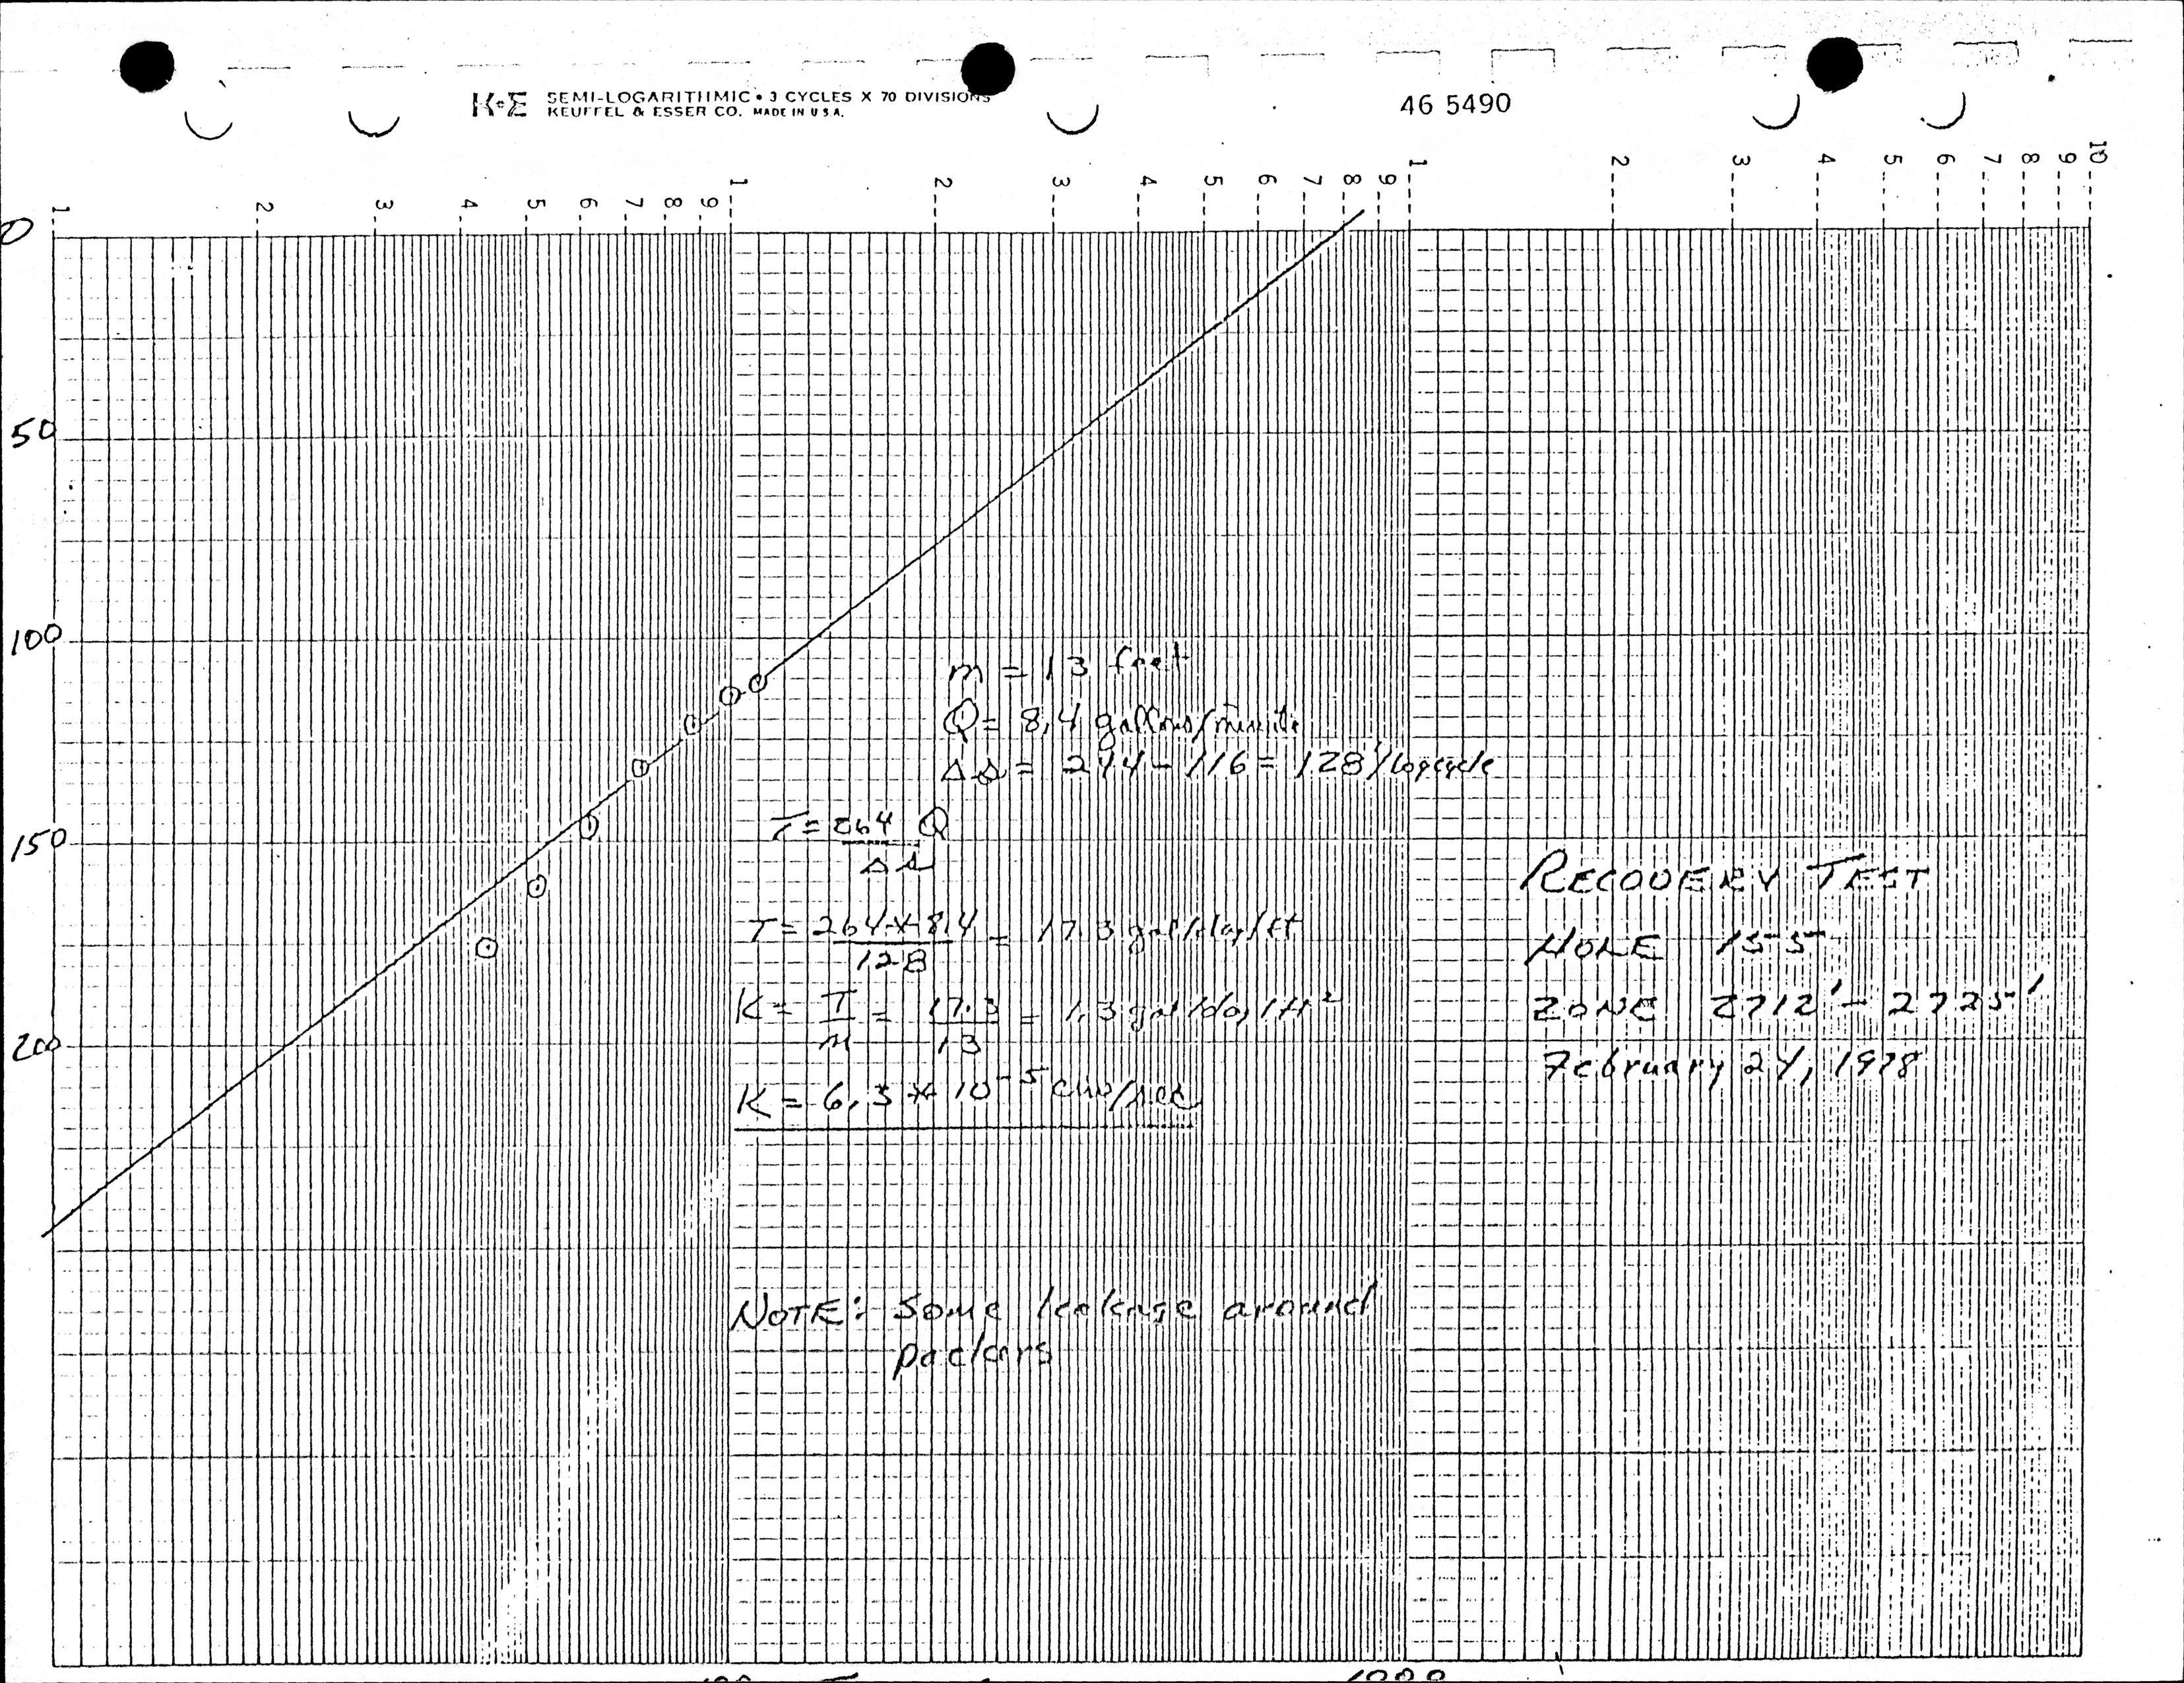 K+E SEMI-LOGARITHMIC • 3 CYCLES X 70 DIVISIONS
KEUFFEL & ESSER CO. MADE IN U.S.A.
46 5490
1 2 3 4 5 6 7 8 9 1 2 3 4 5 6 7 8 9 1 2 3 4 5 6 7 8 9 10
0
50
100
m = 13 feet
Q = 8.4 gallons/minute
Δs = 244 - 116 = 128'/logcycle
T = 264 Q
Δs
150
RECOVERY TEST
T = 264 * 8.4 = 17.3 gal/day/ft
128
HOLE 155
K = T = 17.3 = 1.3 gal/day/ft²
m 13
ZONE 2712' - 2725'
200
February 24, 1978
K = 6.3 * 10⁻⁵ cm/sec
NOTE: Some leakage around
packers
1000